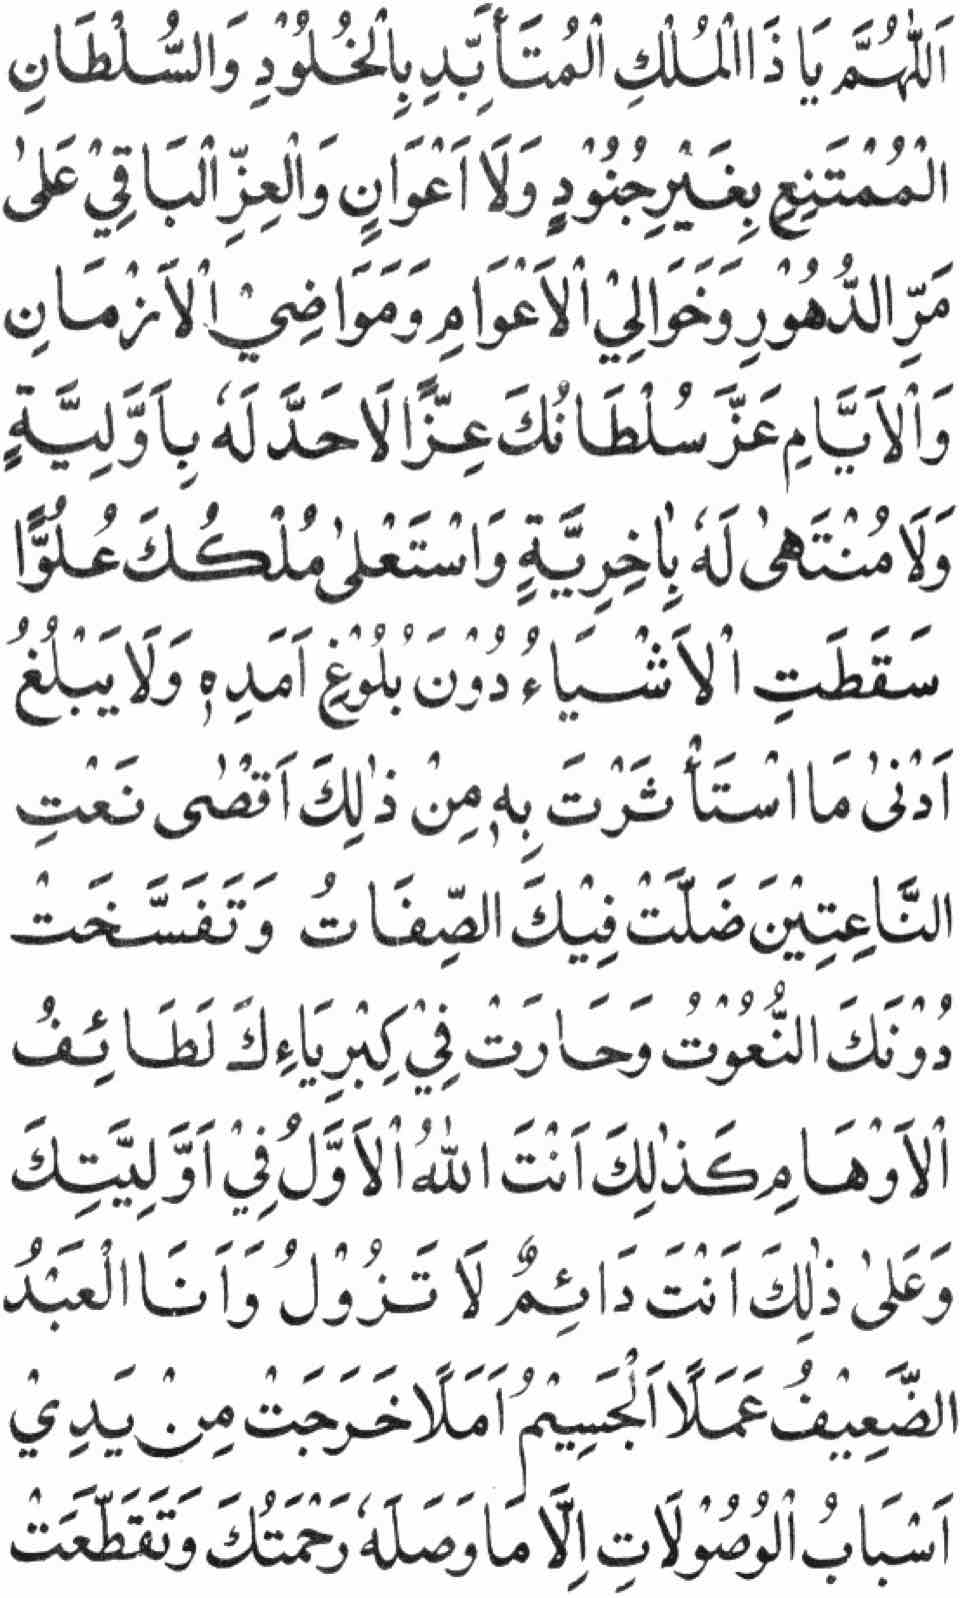 اَللّٰهُمَّ يَا ذَا الْمُلْكِ الْمُتَأَبِّدِ بِالْخُلُوْدِ وَالسُّلْطَانِ
الْمُمْتَنِعِ بِغَيْرِ جُنُوْدٍ وَلَا اَعْوَانٍ وَالْعِزِّ الْبَاقِيْ عَلىٰ
مَرِّ الدُّهُوْرِ وَخَوَالِيْ الْاَعْوَامِ وَمَوَاضِيْ الْاَزْمَانِ
وَالْاَيَّامِ عَزَّ سُلْطَانُكَ عِزًّا لَا حَدَّ لَهٗ بِاَوَّلِيَّةٍ
وَلَا مُنْتَهىٰ لَهٗ بِاٰخِرِيَّةٍ وَاسْتَعْلىٰ مُلْكُكَ عُلُوًّا
سَقَطَتِ الْاَشْيَاءُ دُوْنَ بُلُوْغِ اَمَدِهٖ وَلَا يَبْلُغُ
اَدْنىٰ مَا اسْتَأْثَرْتَ بِهٖ مِنْ ذٰلِكَ اَقْصٰى نَعْتِ
النَّاعِتِيْنَ ضَلَّتْ فِيْكَ الصِّفَاتُ وَتَفَسَّخَتْ
دُوْنَكَ النُّعُوْتُ وَحَارَتْ فِيْ كِبْرِيَاءِكَ لَطَائِفُ
الْاَوْهَامِ كَذٰلِكَ اَنْتَ اللهُ الْاَوَّلُ فِيْ اَوَّلِيَّتِكَ
وَعَلىٰ ذٰلِكَ اَنْتَ دَائِمٌ لَا تَزُوْلُ وَاَنَا الْعَبْدُ
الضَّعِيْفُ عَمَلًا اَلْجَسِيْمُ اَمَلًا خَرَجَتْ مِنْ يَدِيْ
اَسْبَابُ الْوُصُوْلَاتِ اِلَّا مَا وَصَلَهٗ رَحْمَتُكَ وَتَقَطَّعَتْ